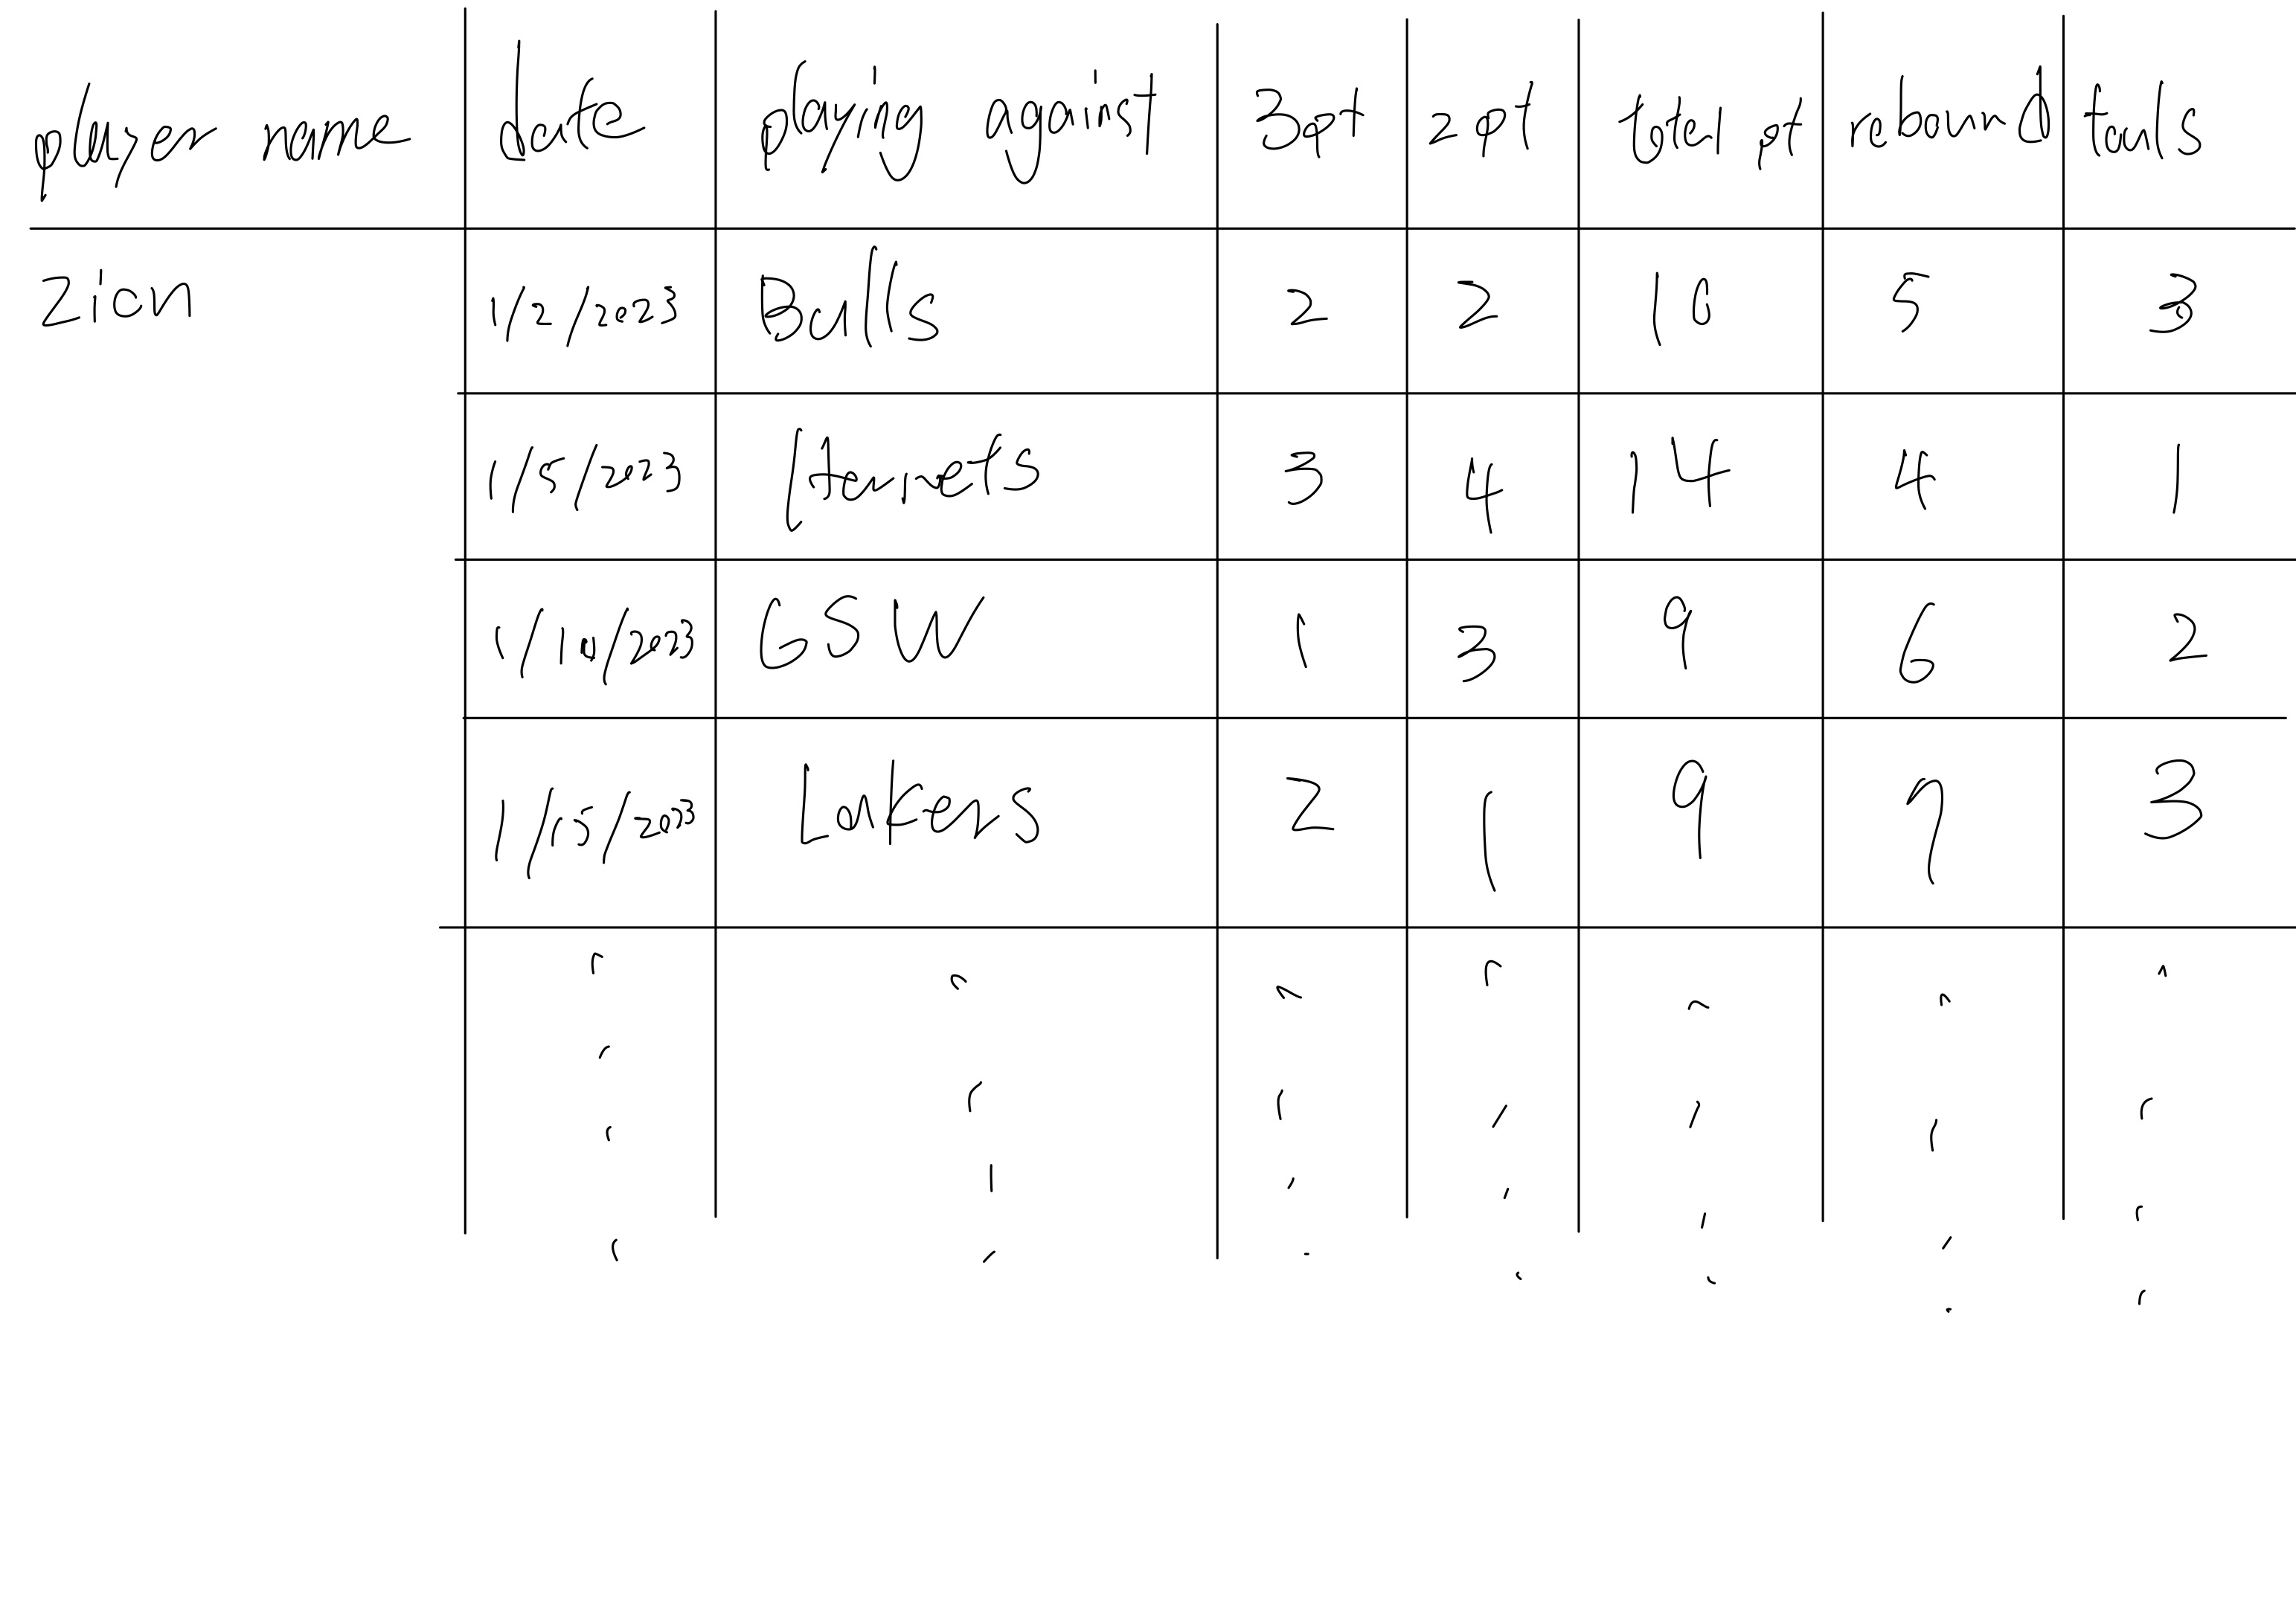 player name date playing against 3pt 2pt total pt rebound fouls
Zion 1/2/2023 Bulls 2 2 10 5 3
1/5/2023 Hornets 3 4 14 4 1
1/10/2023 GSW 1 3 9 6 2
1/15/2023 Lakers 2 1 9 7 3